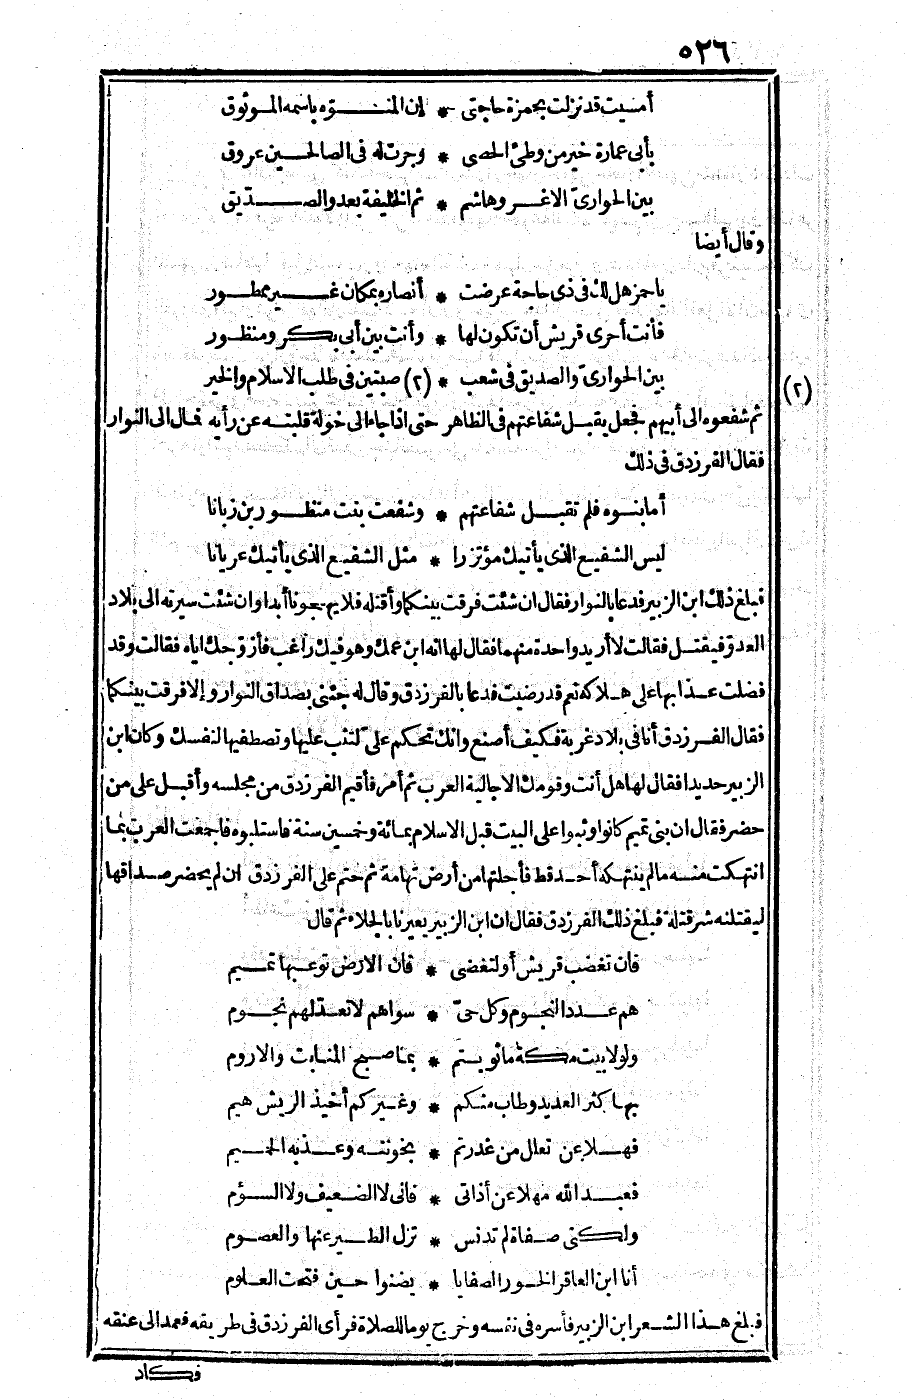 ٥٢٦
أمسيت قد نزلت بحمزة حاجتى * إن المنوّه باسمه الموثوق
بأبى عمارة خير من وطئ الحصى * وجرت له فى الصالحين عروق
بين الحوارىّ الاغر وهاشم * ثم الخليفة بعد والصديق
وقال أيضا
ياحمز هل لك فى ذى حاجة عرضت * أنضاره بمكان غير ممطور
فأنت أحرى قريش أن تكون لها * وأنت بين أبى بكر ومنظور
بين الحوارىّ والصديق فى شعب * (٢) صبتين فى طلب الاسلام والخير
(٢)
ثم شفعوه الى أبيهم فجعل يقبل شفاعتهم فى الظاهر حتى اذا جاء الى خولة قلبته عن رأيه فمال الى النوار
فقال الفرزدق فى ذلك
أما بنوه فلم تقبل شفاعتهم * وشفعت بنت منظور بن زبانا
ليس الشفيع الذى يأتيك مؤتزرا * مثل الشفيع الذى يأتيك عريانا
فبلغ ذلك ابن الزبير فدعا بالنوار فقال ان شئت فرقت بينكما وأقتله فلا يهجونا أبدا وان شئت سيرته الى بلاد
العدوّ فيقتل فقالت لا أريد واحدة منهما فقال لها انه ابن عمك وهو فيك راغب فأزوّجك اياه فقالت وقد
فضلت عذابها على هلاكه نعم قد رضيت فدعا بالفرزدق وقال له جئنى بصداق النوار وإلا فرقت بينكما
فقال الفرزدق أنا فى بلاد غربة فكيف أصنع وانك تحكم علىّ لتثب عليها وتصطفيها لنفسك وكان ابن
الزبير حديدا فقال لها هل أنت وقومك الا جالية العرب ثم أمر فأقيم الفرزدق من مجلسه وأقبل على من
حضر فقال ان بنى تميم كانوا وثبوا على البيت قبل الاسلام بمائة وخمسين سنة فاستلبوه فاجتمعت العرب بما
انتهكت منه مالم ينتهكه أحد قط فأجلتها من أرض تهامة ثم حتم على الفرزدق ان لم يحضر صداقها
ليقتلنه شر قتلة فبلغ ذلك الفرزدق فقال ان ابن الزبير يعيرنا بالجلاء ثم قال
فان تغضب قريش أو لتغضى * فان الارض توعبها تميم
هم عدد النجوم وكل حىّ * سواهم لا تعدّ لهم نجوم
ولولا بيت مكة ماثويتم * بها صح المنابت والاروم
بها كثر العديد وطاب منكم * وغيركم أخيذ الريش هيم
فهلا عن تعال من غدرتم * بخونته وعذبه الحميم
فعبد الله مهلا عن أذاتى * فانى لا الضعيف ولا السؤم
ولكنى صفاة لم تدنس * تزل الطير عنها والعصوم
أنا ابن العاقر الخور الصفايا * يضنوا حين فتحت العلوم
فبلغ هذا الشعر ابن الزبير فأسره فى نفسه وخرج يوما للصلاة فرأى الفرزدق فى طريقه فعمد الى عنقه
فكاد